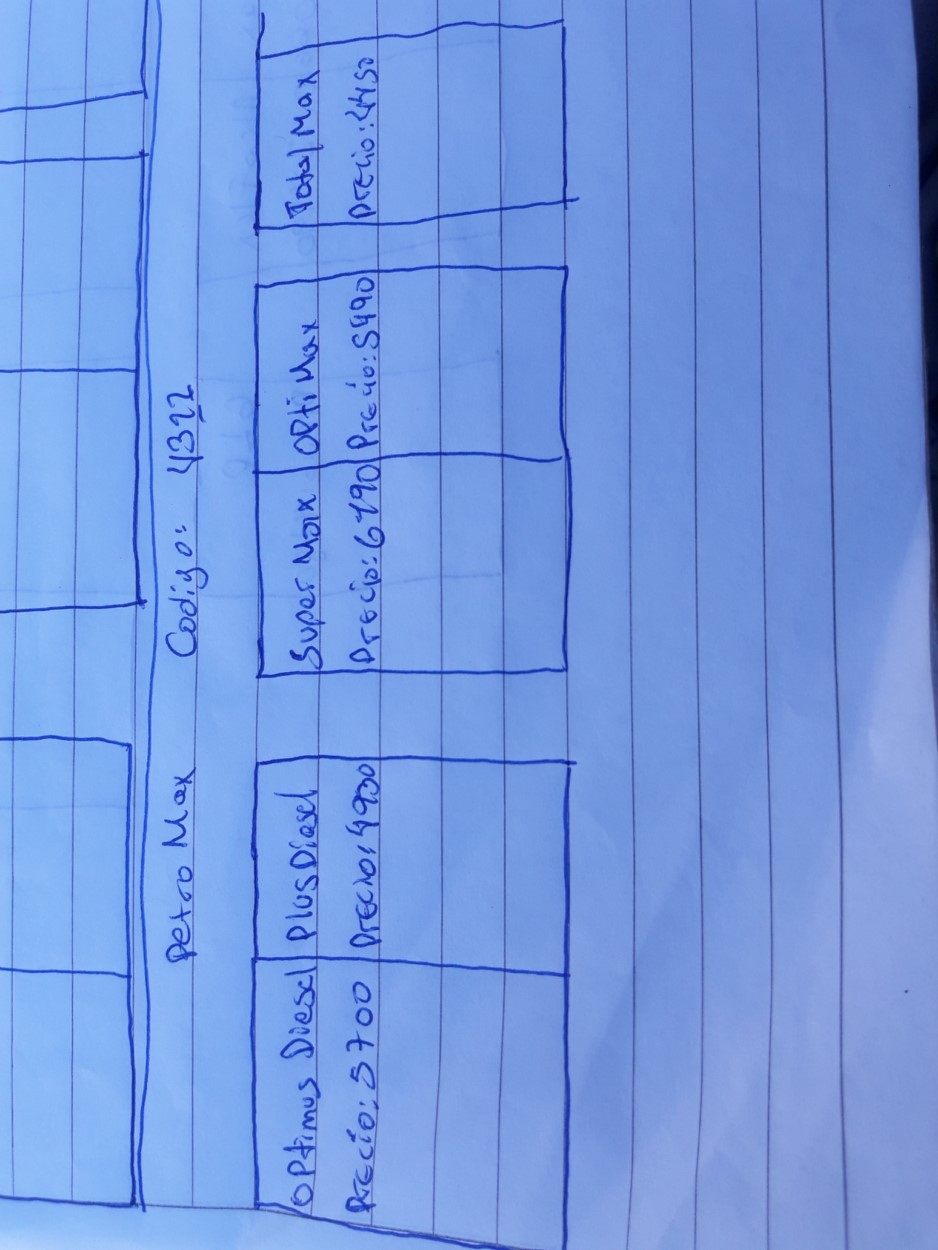 Petro Max Codigo: 4322
Optimus Diesel Plus Diesel Super Max Opti Max Total Max
Precio: 5700 Precio: 4930 Precio: 6490 Precio: 5490 Precio: 4450